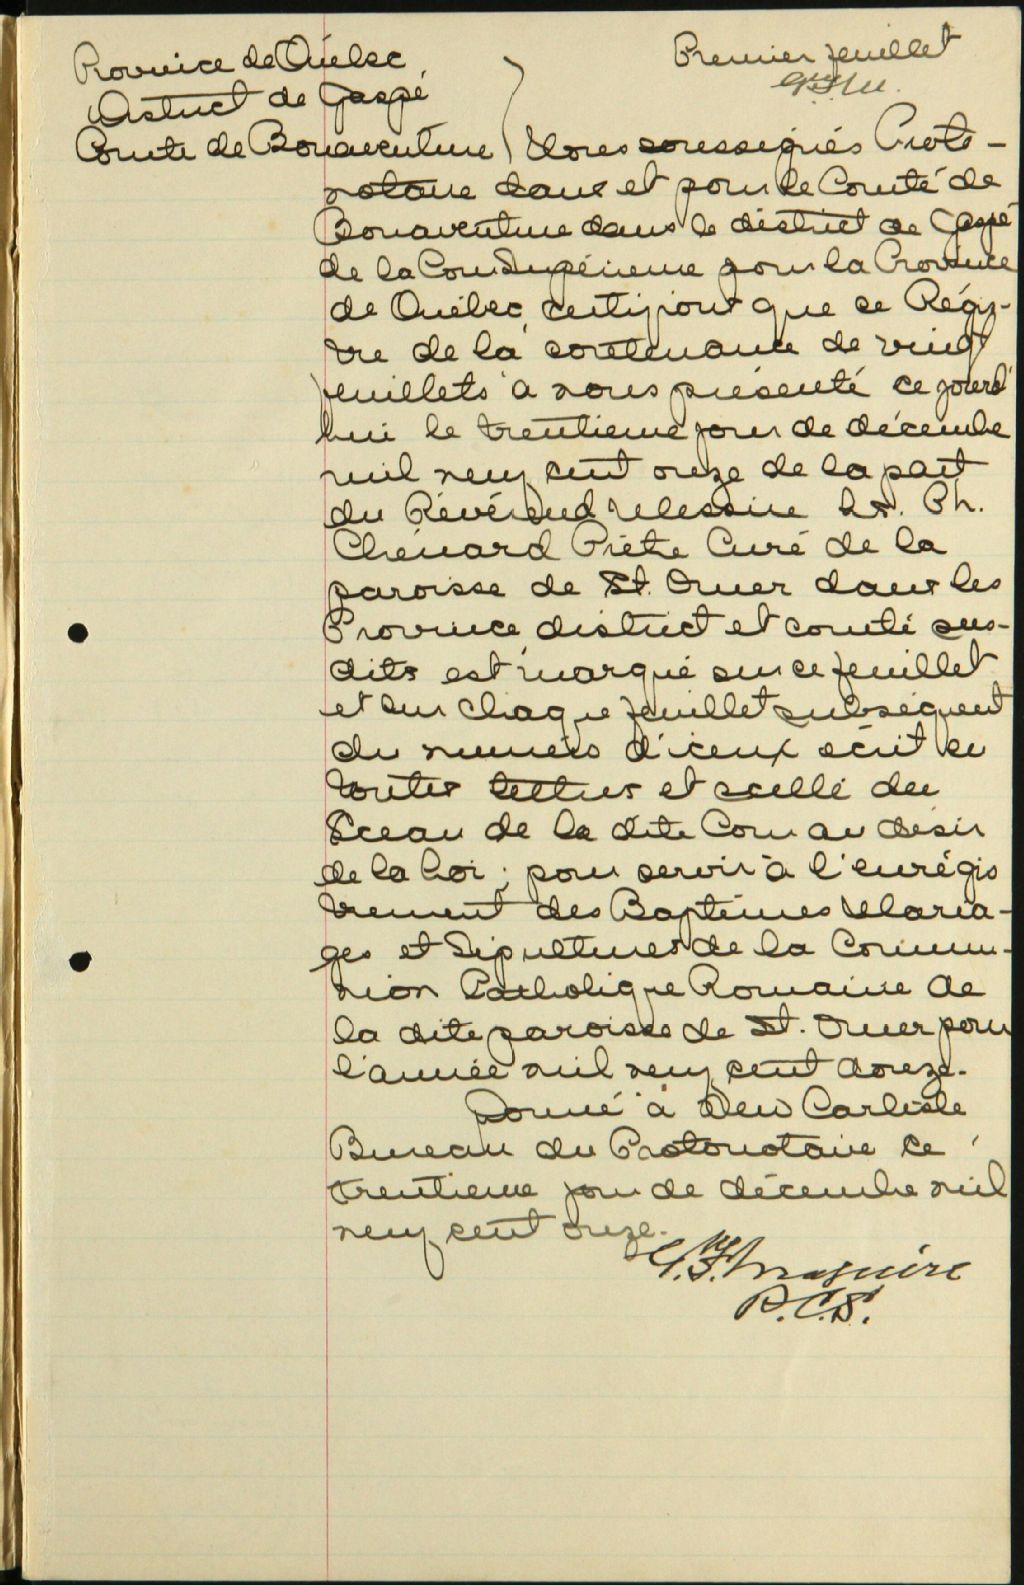 Province de Québec
District de Gaspé
Comté de Bonaventure
Premier feuillet
Nous soussignés Proto-
notaire dans et pour le Comté de
Bonaventure dans le district de Gaspé
de la Cour Supérieure pour la Province
de Québec, certifions que ce Régis-
tre de la contenance de vingt
feuillets à nous présenté ce jourd'
hui le trentieme jour de décembre
mil neuf cent onze de la part
du Révérend Messire Ls. Ph.
Chénard Prêtre Curé de la
paroisse de St. Omer dans les
Province district et comté sus-
dits est marqué sur ce feuillet
et sur chaque feuillet subséquent
du numéro d'iceux écrit en
toutes lettres et scellé du
Sceau de la dite Cour au désir
de la Loi; pour servir à l'enrégis
trement des Baptêmes Maria-
ges et Sépultures de la Commu-
nion Catholique Romaine de
la dite paroisse de St. Omer pour
l'année mil neuf cent douze.
Donné à New Carlisle
Bureau du Protonotaire ce
trentieme jour de décembre mil
neuf cent onze.
Maguire
P.C.S.